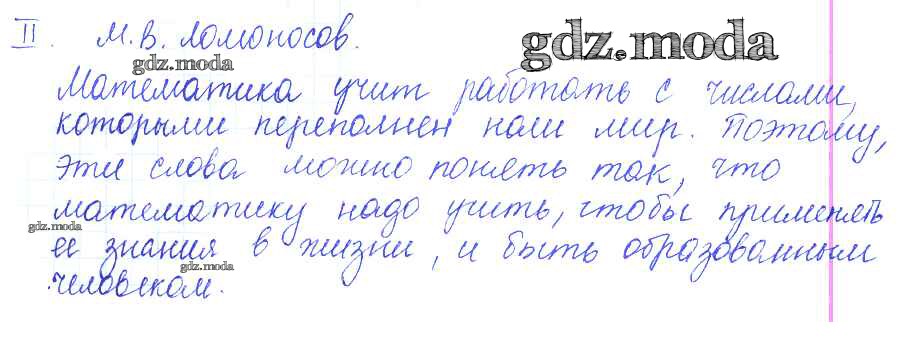 II. М.В. Ломоносов.
gdz.moda
gdz.moda
Математика учит работать с числами,
которыми переполнен наш мир. Поэтому,
эти слова можно понять так, что
математику надо учить, чтобы применять
gdz.moda
ее знания в жизни, и быть образованным
gdz.moda
человеком.